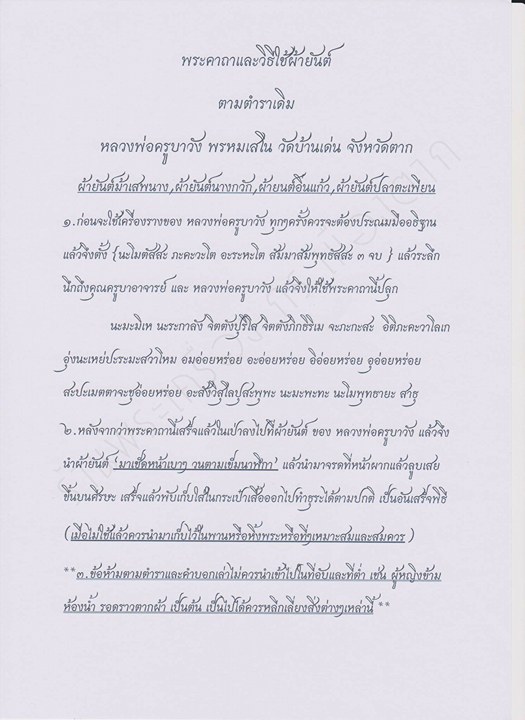 พระคาถาและวิธีใช้ผ้ายันต์
ตามตำราเดิม
หลวงพ่อครูบาวัง พรหมเสโน วัดบ้านเด่น จังหวัดตาก
ผ้ายันต์ม้าเสพนาง,ผ้ายันต์นางกวัก,ผ้ายนต์อิ้นแก้ว,ผ้ายันต์ปลาตะเพียน
๑.ก่อนจะใช้เครื่องรางของ หลวงพ่อครูบาวัง ทุกๆครั้งควรจะต้องประณมมืออธิฐาน
แล้วจึงตั้ง {นะโมตัสสะ ภะคะวะโต อะระหะโต สัมมาสัมพุทธัสสะ ๓ จบ } แล้วระลึก
นึกถึงคุณครูบาอาจารย์ และ หลวงพ่อครูบาวัง แล้วจึงให้ใช้พระคาถานี้ปลุก
นะมะมิเห นะระกาลัง จิตตังปุริโส จิตตังภิกธิริเม จะภะกะสะ อิติภะคะวาโลเก
อุ่งนะเหย่ประมะสวาโหม อมอ่อยหร่อย อะอ่อยหร่อย อิอ่อยหร่อย อุอ่อยหร่อย
สะปะเมตตาจะชูอ่อยหร่อย อะสังวิสุโลปุสะพุพะ นะมะพะทะ นะโมพุทธายะ สาธุ
๒.หลังจากว่าพระคาถานี้เสร็จแล้วในเป่าลงไปที่ผ้ายันต์ ของ หลวงพ่อครูบาวัง แล้วจึง
นำผ้ายันต์ ‘มาเช็ดหน้าเบาๆ วนตามเข็มนาฬิกา’ แล้วนำมาจรดที่หน้าผากแล้วลูบเสย
ขึ้นบนศีรษะ เสร็จแล้วพับเก็บใส่ในกระเป๋าเสื้อออกไปทำธุระได้ตามปกติ เป็นอันเสร็จพิธี
(เมื่อไม่ใช้แล้วควรนำมาเก็บไว้ในพานหรือหิ้งพระหรือที่ๆเหมาะสมและสมควร )
**๓.ข้อห้ามตามตำราและคำบอกเล่าไม่ควรนำเข้าไปในที่อับและที่ต่ำ เช่น ผู้หญิงข้าม
ห้องน้ำ รอดราวตากผ้า เป็นต้น เป็นไปได้ควรหลีกเลี่ยงสิ่งต่างๆเหล่านี้ **